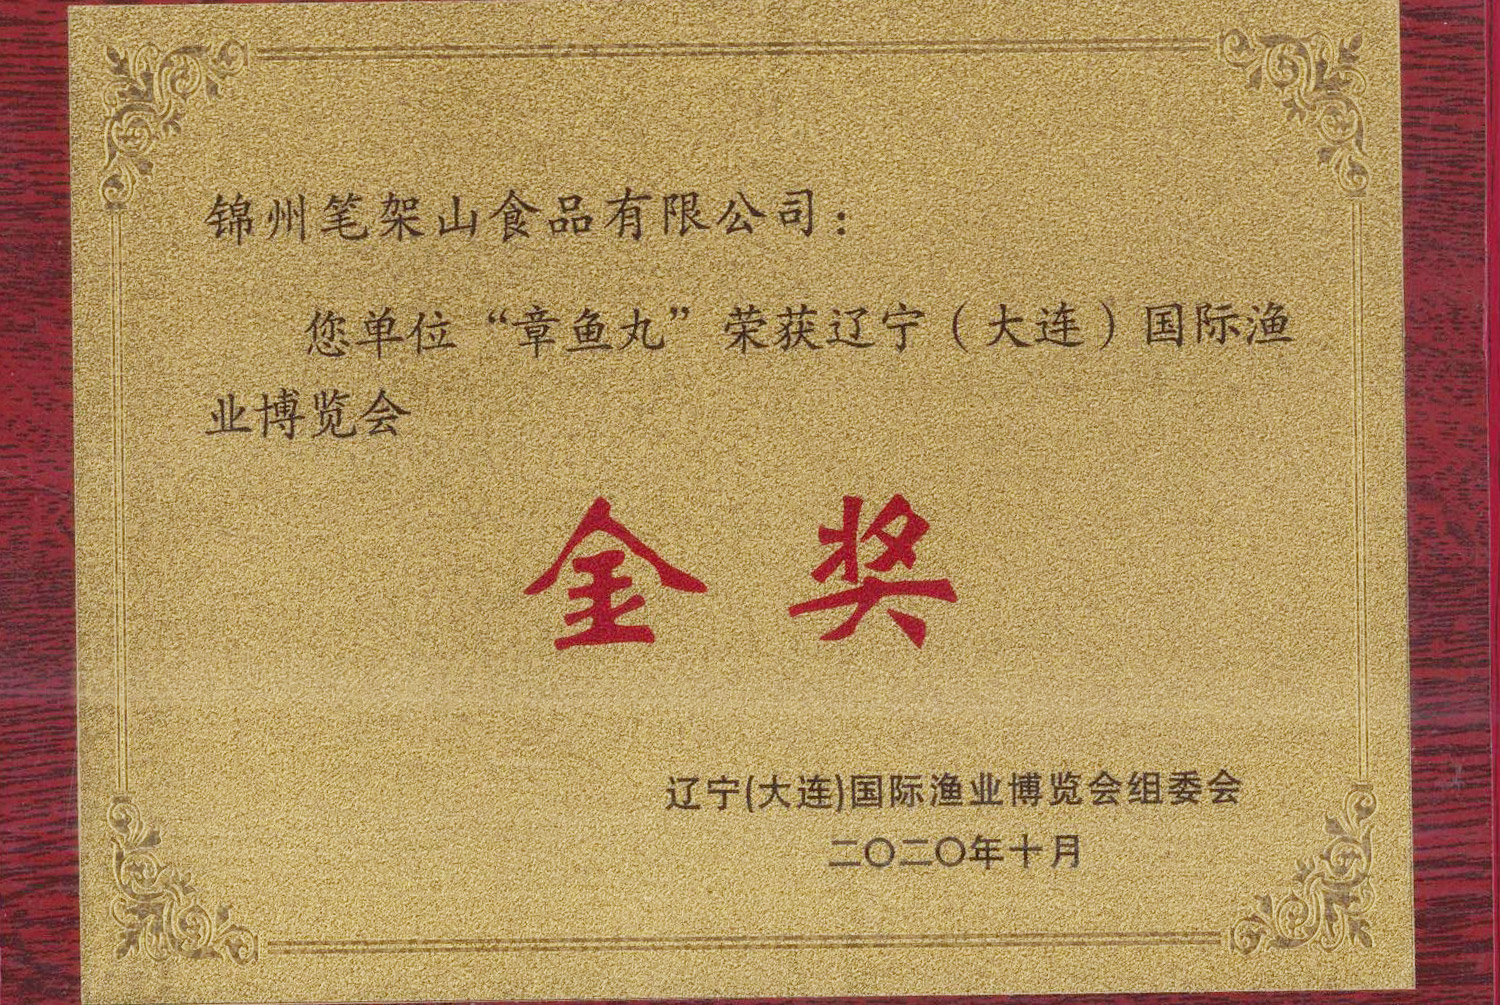 锦州笔架山食品有限公司：
您单位“章鱼丸”荣获辽宁（大连）国际渔
业博览会
金奖
辽宁(大连)国际渔业博览会组委会
二〇二〇年十月